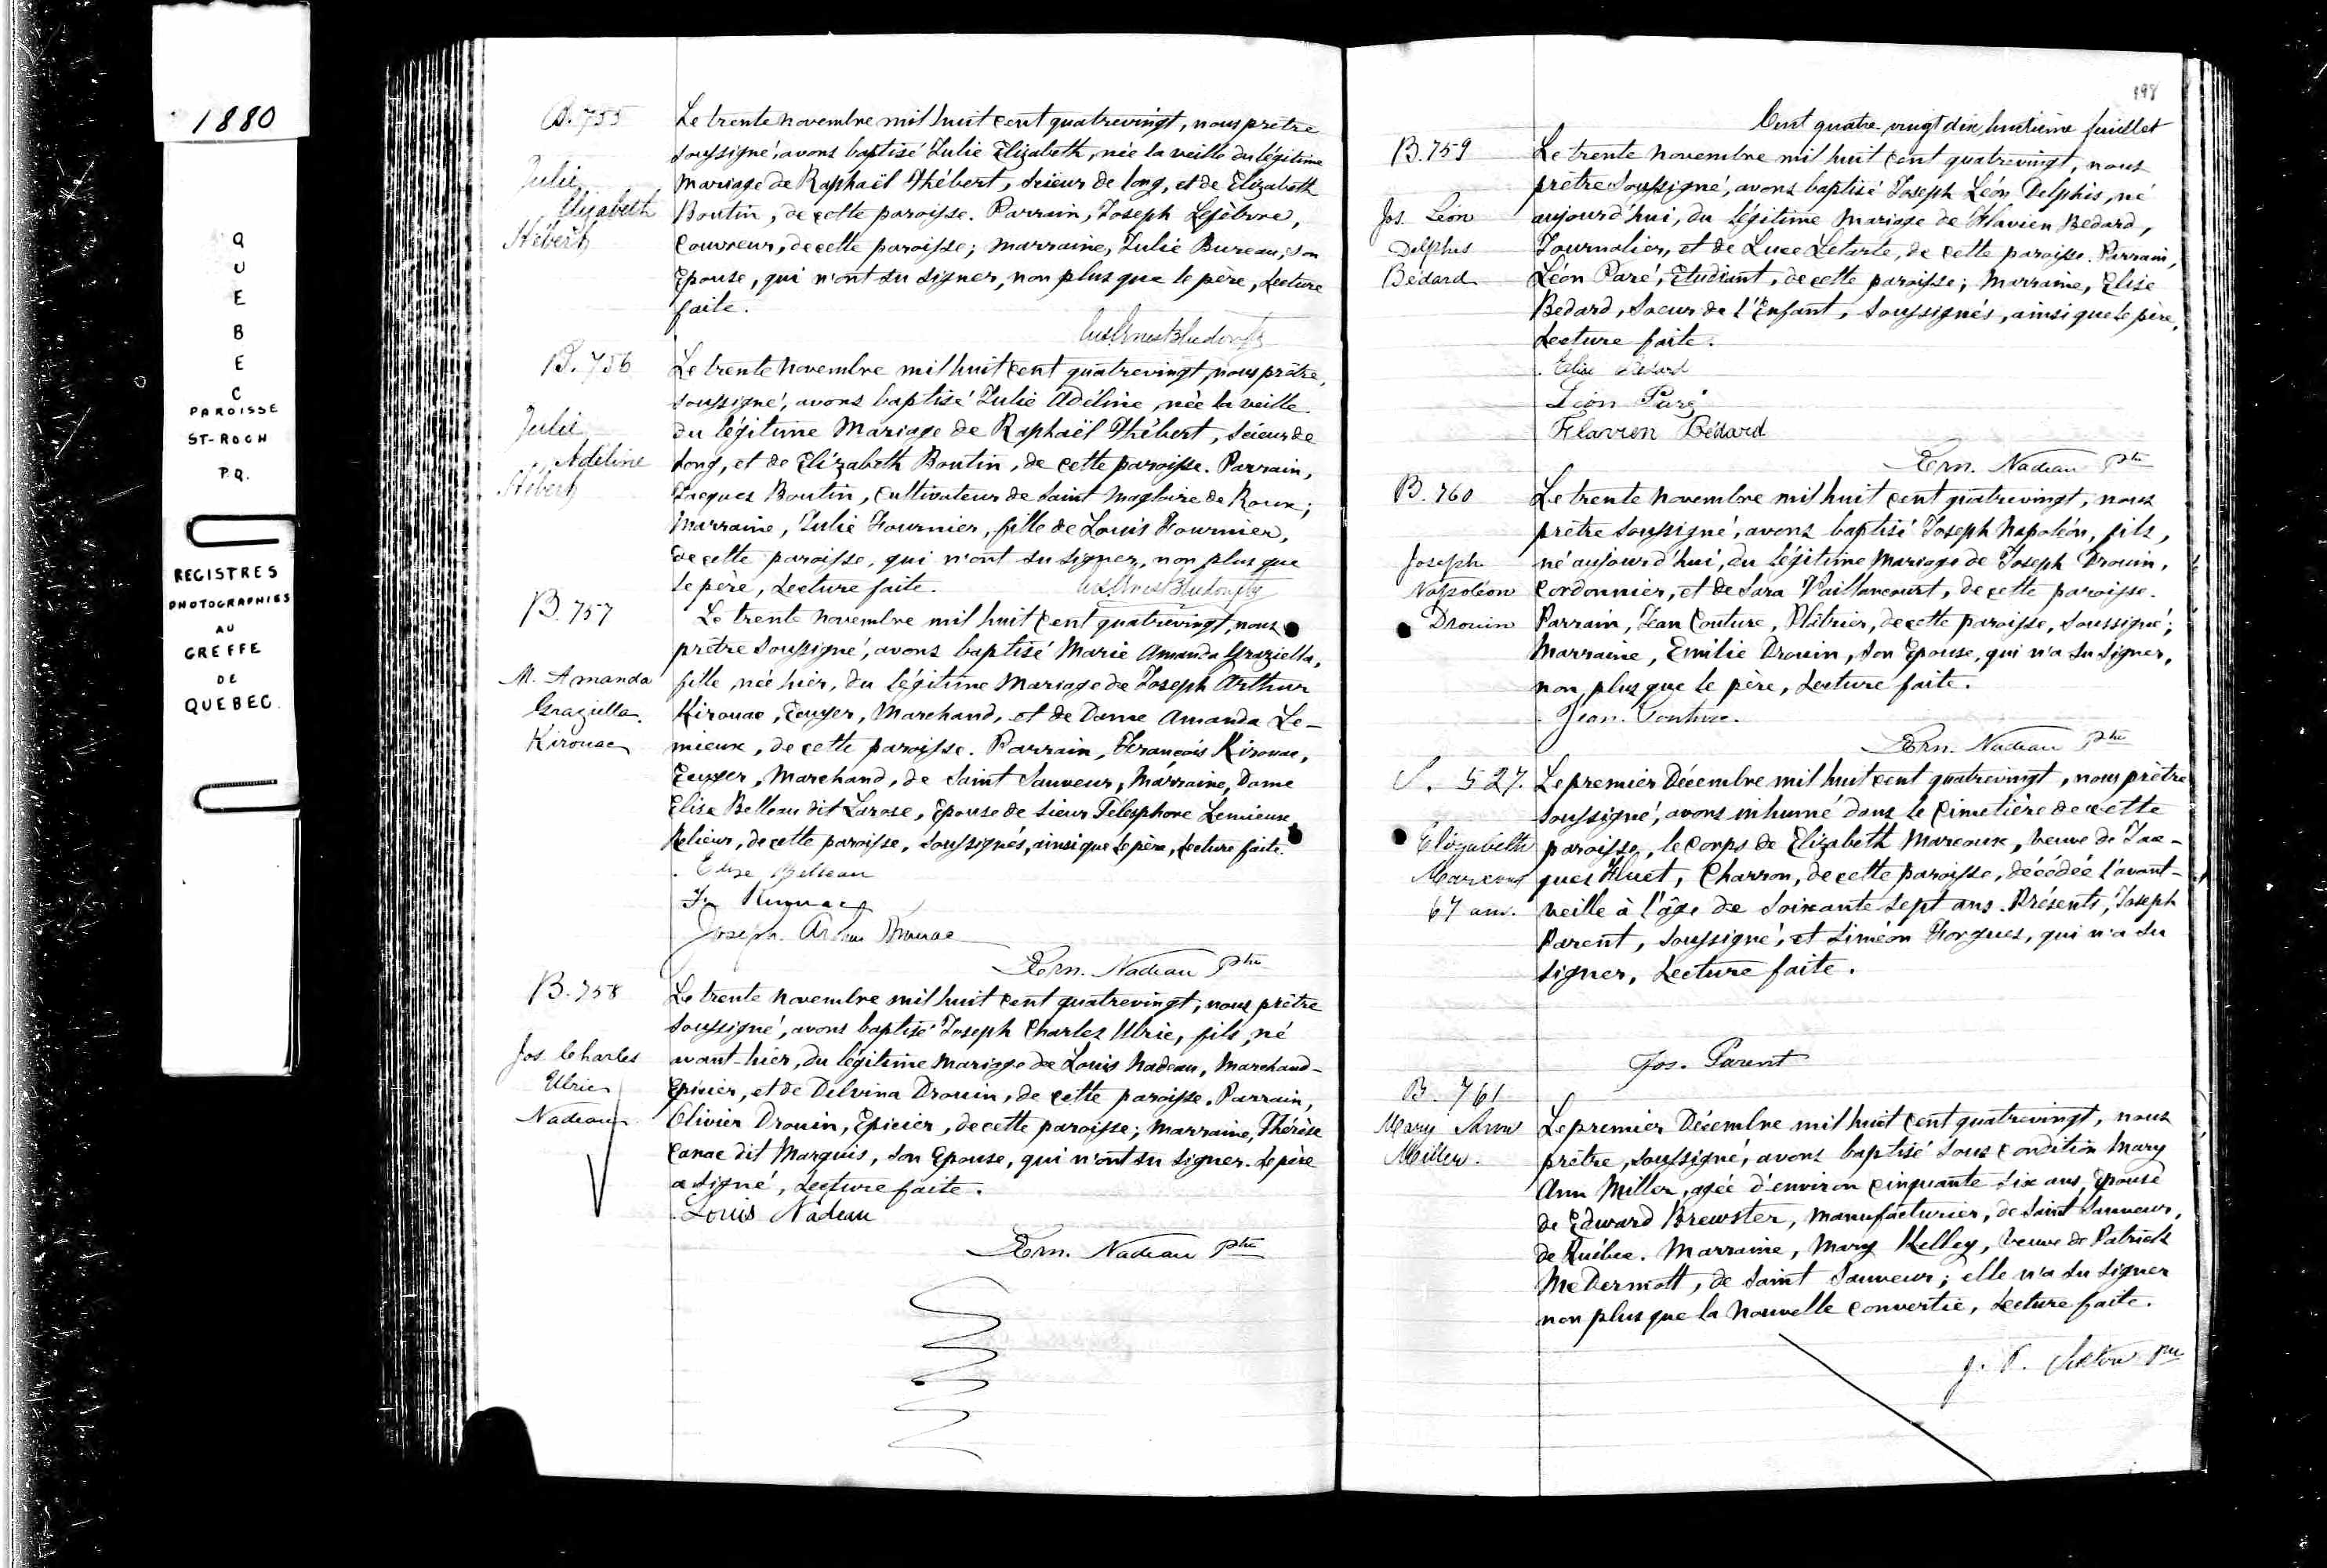 1880
QUEBEC
PAROISSE
ST-ROCH
P.Q.
REGISTRES
PHOTOGRAPHIES
AU
GREFFE
DE
QUEBEC
B. 755
Julie
Elizabeth
Hébert
Le trente Novembre mil huit cent quatrevingt, nous prêtre
soussigné, avons baptisé Julie Elizabeth, née la veille du légitime
Mariage de Raphaël Hébert, Scieur de long, et de Elizabeth
Boutin, de cette paroisse. Parrain, Joseph Lefebvre,
Couvreur, de cette paroisse; Marraine, Julie Bureau, son
Epouse, qui n'ont su signer, non plus que le père, Lecture
faite.
B. 756
Julie
Adéline
Hébert
Le trente Novembre mil huit cent quatrevingt, nous prêtre,
soussigné, avons baptisé Julie Adéline, née la veille
du légitime Mariage de Raphaël Hébert, Scieur de
long, et de Elizabeth Boutin, de cette paroisse. Parrain,
Jacques Boutin, Cultivateur de Saint Magloire de Roux;
Marraine, Julie Fournier, fille de Louis Fournier,
de cette paroisse, qui n'ont su signer, non plus que
le père, Lecture faite.
B. 757
M. Amanda
Graziella
Kirouac
Le trente Novembre mil huit cent quatrevingt, nous
prêtre soussigné, avons baptisé Marie Amanda Graziella,
fille, née hier, du légitime Mariage de Joseph Arthur
Kirouac, Ecuyer, Marchand, et de Dame Amanda Le-
mieux, de cette paroisse. Parrain, François Kirouac,
Ecuyer, Marchand, de Saint Sauveur, Marraine, Dame
Elise Belleau dit Larose, Epouse de Sieur Télesphore Lemieux,
Relieur, de cette paroisse, soussignés, ainsi que le père, Lecture faite.
Elise Belleau
Fr. Kirouac
Joseph Arthur Kirouac
Ern. Nadeau Ptre
B. 758
Jos. Charles
Ulric
Nadeau
Le trente Novembre mil huit cent quatrevingt, nous prêtre
soussigné, avons baptisé Joseph Charles Ulric, fils, né
avant-hier, du légitime Mariage de Louis Nadeau, Marchand-
Epicier, et de Delvina Drouin, de cette paroisse. Parrain,
Olivier Drouin, Epicier, de cette paroisse; Marraine, Thérèse
Canac dit Marquis, son Epouse, qui n'ont su signer. Le père
a signé, Lecture faite.
Louis Nadeau
Ern. Nadeau Ptre
198
Cent quatre vingt dix huitième feuillet
B. 759
Jos. Léon
Delphis
Bédard
Le trente Novembre mil huit cent quatrevingt, nous
prêtre soussigné, avons baptisé Joseph Léon Delphis, né
aujourd'hui, du légitime Mariage de Flavien Bedard,
Journalier, et de Luce Letarte, de cette paroisse. Parrain,
Léon Paré, Etudiant, de cette paroisse; Marraine, Elise
Bedard, Soeur de l'Enfant, soussignés, ainsi que le père,
Lecture faite.
Elise Bedard
Léon Paré
Flavien Bédard
Ern. Nadeau Ptre
B. 760
Joseph
Napoléon
Drouin
Le trente Novembre mil huit cent quatrevingt, nous
prêtre soussigné, avons baptisé Joseph Napoléon, fils,
né aujourd'hui, du légitime Mariage de Joseph Drouin,
Cordonnier, et de Sara Vaillancourt, de cette paroisse.
Parrain, Jean Couture, Plâtrier, de cette paroisse, soussigné;
Marraine, Emilie Drouin, son Epouse, qui n'a su signer,
non plus que le père, Lecture faite.
Jean Couture.
Ern. Nadeau Ptre
S. 527.
Elizabeth
Marcoux
67 ans.
Le premier Décembre mil huit cent quatrevingt, nous prêtre
soussigné, avons inhumé dans le Cimetière de cette
paroisse, le Corps de Elizabeth Marcoux, Veuve de Jac-
ques Huet, Charron, de cette paroisse, décédée l'avant-
veille à l'âge de soixante sept ans. Présents, Joseph
Parent, soussigné, et Siméon Forgues, qui n'a su
signer, Lecture faite.
Jos. Parent
B. 761
Mary Ann
Miller.
Le premier Décembre mil huit cent quatrevingt, nous
prêtre, soussigné, avons baptisé sous condition Mary
Ann Miller, agée d'environ cinquante six ans, Epouse
de Edward Brewster, Manufacturier, de Saint Sauveur,
de Québec. Marraine, Mary Kelley, Veuve de Patrick
McDermott, de Saint Sauveur; elle n'a su signer
non plus que la Nouvelle Convertie, Lecture faite.
J. P. Sexton Ptre